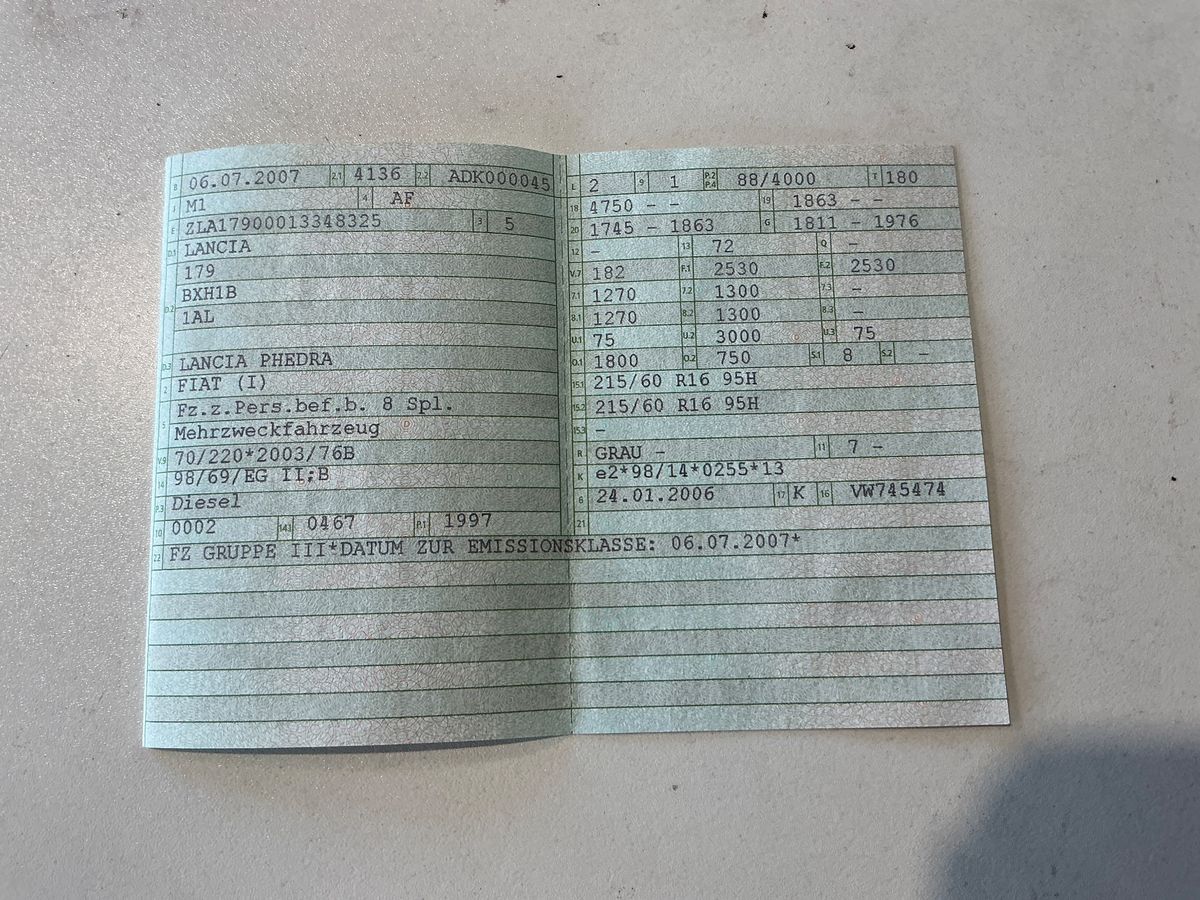 B 06.07.2007 2.1 4136 2.2 ADK000045
J M1 4 AF
E ZLA17900013348325 3 5
D.1 LANCIA
179
D.2 BXH1B
1AL
D.3 LANCIA PHEDRA
2 FIAT (I)
Fz.z.Pers.bef.b. 8 Spl.
5 Mehrzweckfahrzeug
V.9 70/220*2003/76B
14 98/69/EG II;B
P.3 Diesel
10 0002 14.1 0467 P.1 1997
22 FZ GRUPPE III*DATUM ZUR EMISSIONSKLASSE: 06.07.2007*
L 2 9 1 P.2 P.4 88/4000 T 180
18 4750 - - 19 1863 - -
20 1745 - 1863 G 1811 - 1976
12 - 13 72 Q -
V.7 182 F.1 2530 F.2 2530
7.1 1270 7.2 1300 7.3 -
8.1 1270 8.2 1300 8.3 -
U.1 75 U.2 3000 U.3 75
O.1 1800 O.2 750 S.1 8 S.2 -
15.1 215/60 R16 95H
15.2 215/60 R16 95H
15.3 -
R GRAU - 11 7 -
K e2*98/14*0255*13
6 24.01.2006 17 K 16 VW745474
21